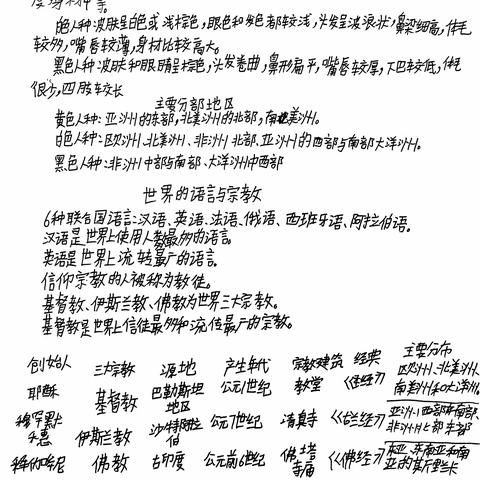 白色人种:皮肤呈白色或浅棕色,眼色和发色都较浅,头发呈波浪状,鼻梁细高,体毛
较多,嘴唇较薄,身材比较高大。
黑色人种:皮肤和眼睛呈棕色,头发卷曲,鼻形扁平,嘴唇较厚,下巴较低,体毛
很少,四肢较长
主要分部地区
黄色人种:亚洲的东部,北美洲的北部,南北美洲。
白色人种:欧洲、北美洲、非洲北部、亚洲的西部与南部大洋洲。
黑色人种:非洲中部与南部、大洋洲中西部
世界的语言与宗教
6种联合国语言:汉语、英语、法语、俄语、西班牙语、阿拉伯语。
汉语是世界上使用人数最多的语言。
英语是世界上流转最广的语言。
信仰宗教的人被称为教徒。
基督教、伊斯兰教、佛教为世界三大宗教。
基督教是世界上信徒最多和流传最广的宗教。
创始人 三大宗教 源地 产生年代 宗教建筑 经典 主要分布
耶酥 基督教 巴勒斯坦地区 公元1世纪 教堂 《圣经》 欧洲、北美洲、南美洲和大洋洲。
穆罕默德 伊斯兰教 沙特阿拉伯 公元7世纪 清真寺 《古兰经》 亚洲西部东南部、非洲北部东部
释伽牟尼 佛教 古印度 公元前6世纪 佛塔寺庙 《佛经》 东亚、东南亚和南亚的斯里兰卡